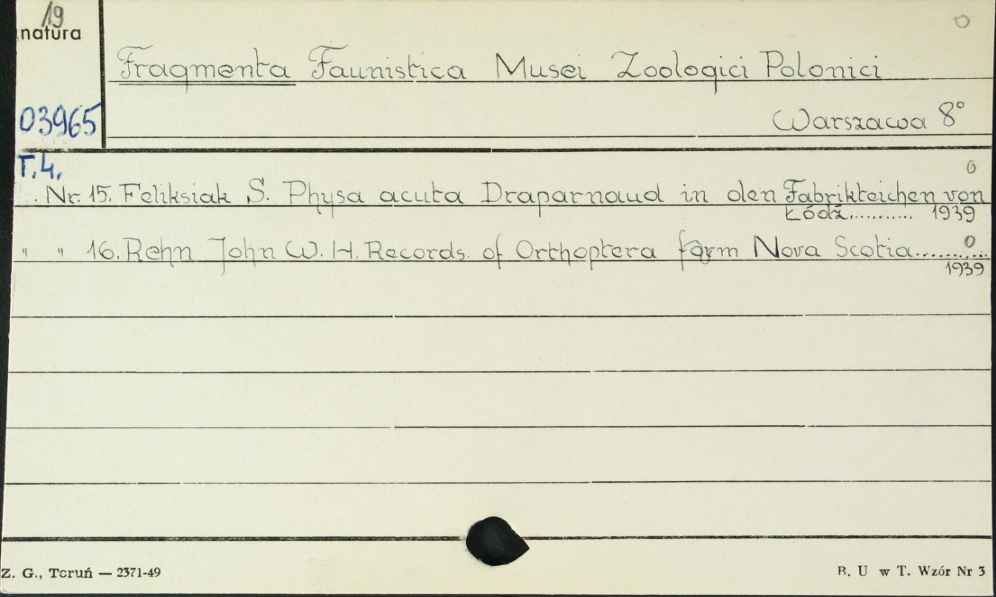 19
natura
Fragmenta Faunistica Musei Zoologici Polonici
03965
Warszawa 8°
T.4.
Nr. 15. Feliksiak S. Physa acuta Draparnaud in den Fabrikteichen von
Łódź.......... 1939
" " 16. Rehn John W. H. Records of Orthoptera form Nova Scotia..........
1939
Z. G., Toruń — 2371-49
B. U w T. Wzór Nr 3